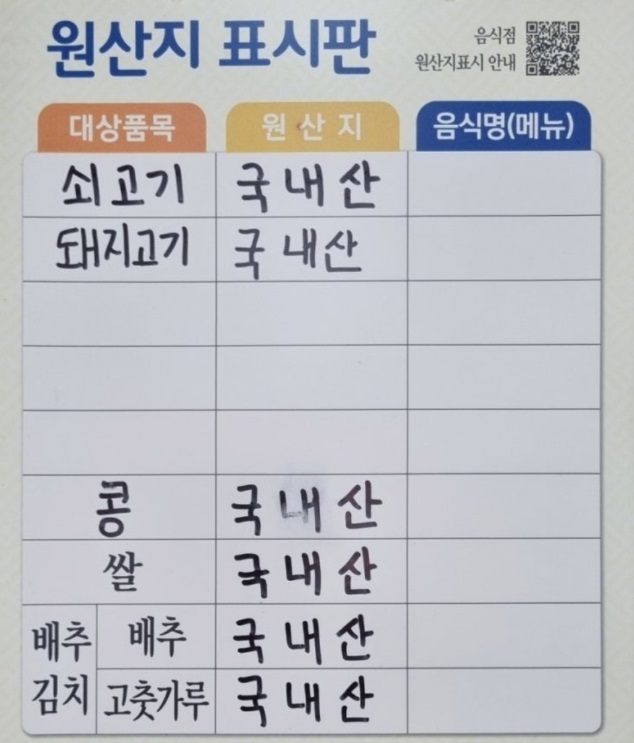 원산지 표시판
음식점
원산지표시 안내
대상품목 원산지 음식명(메뉴)
쇠고기 국내산
돼지고기 국내산
콩 국내산
쌀 국내산
배추 배추 국내산
김치 고춧가루 국내산